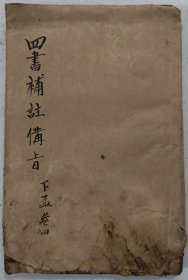 四書補註備旨
下孟卷四